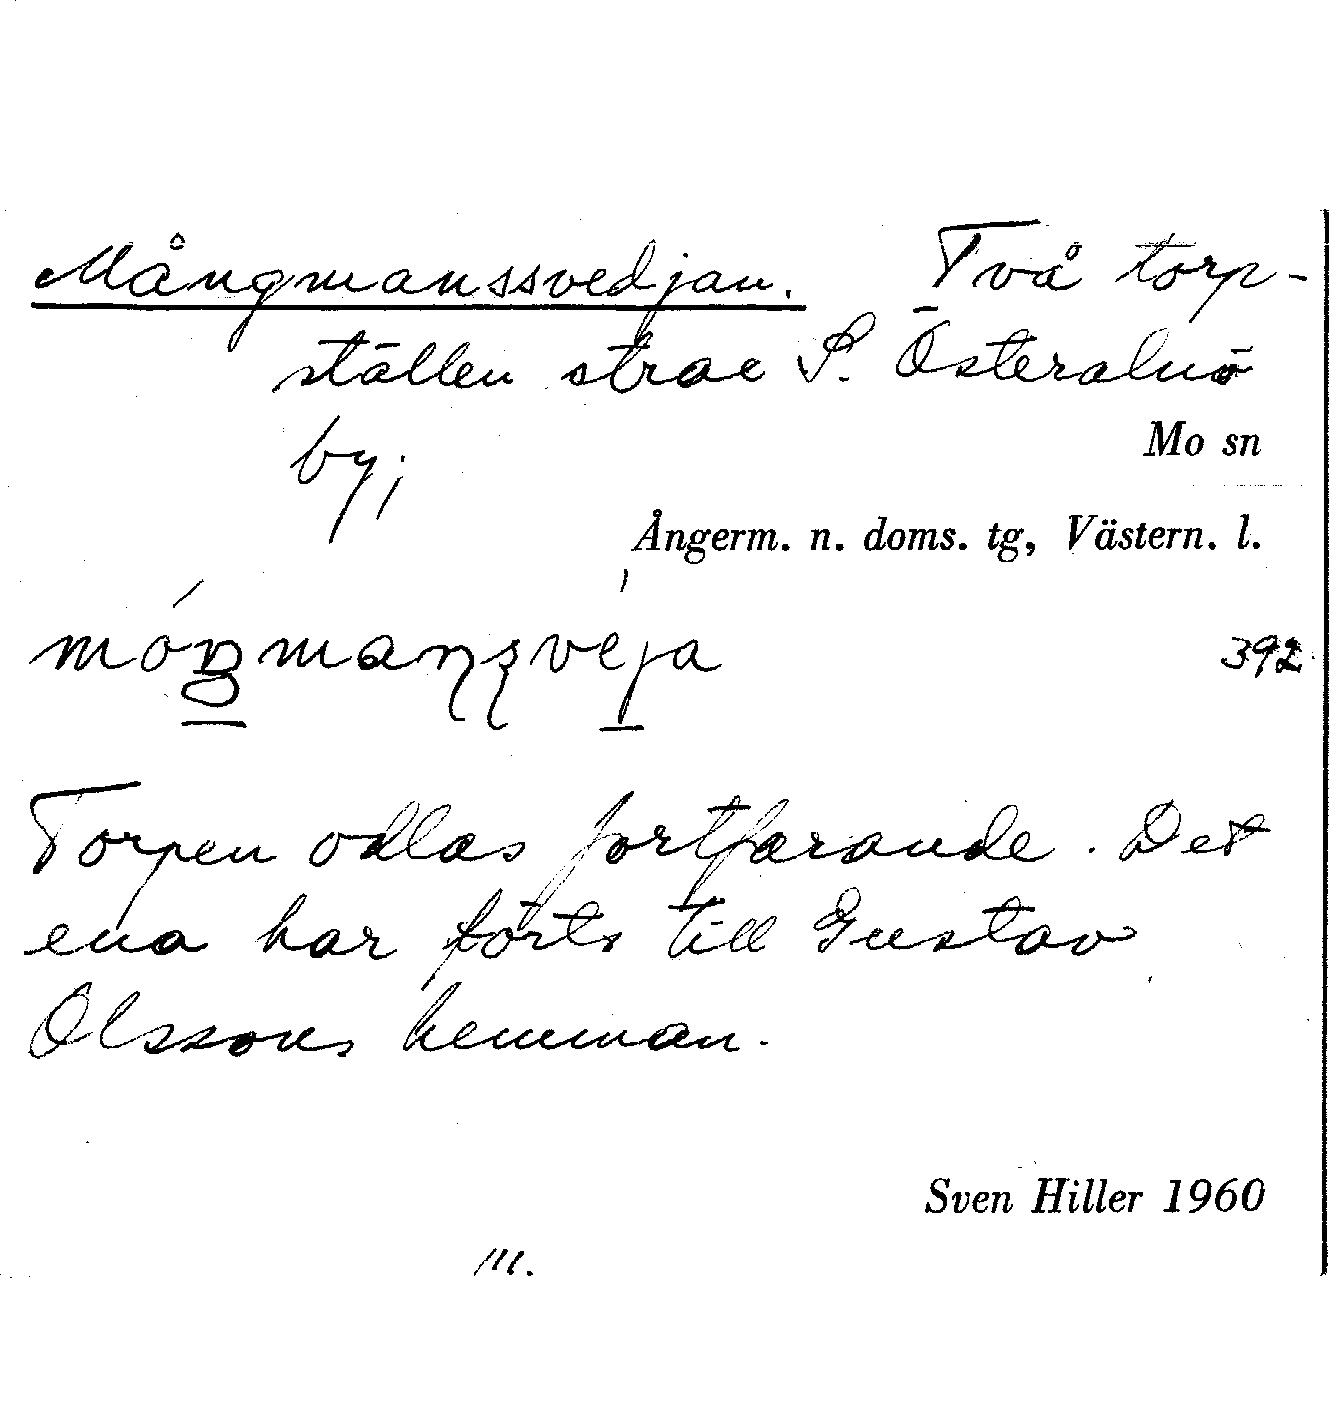 Mångmanssvedjan. Två torp-
ställen strax S. Österalnö
by;
Mo sn
Ångerm. n. doms. tg, Västern. l.
392
Torpen odlas fortfarande. Det
ena har förts till Gustav
Olssons hemman.
Sven Hiller 1960